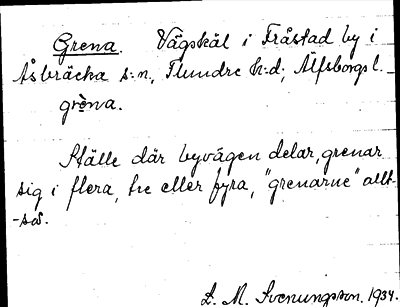 Grena. Vägskäl i Fråstad by i
Åsbräcka s:n, Flundre h:d, Älfsborgs l.
grèna.
Ställe där byvägen delar, grenar
sig i flera, tre eller fyra, "grenarne" allt-
-så.
L. M. Svenungsson. 1934.